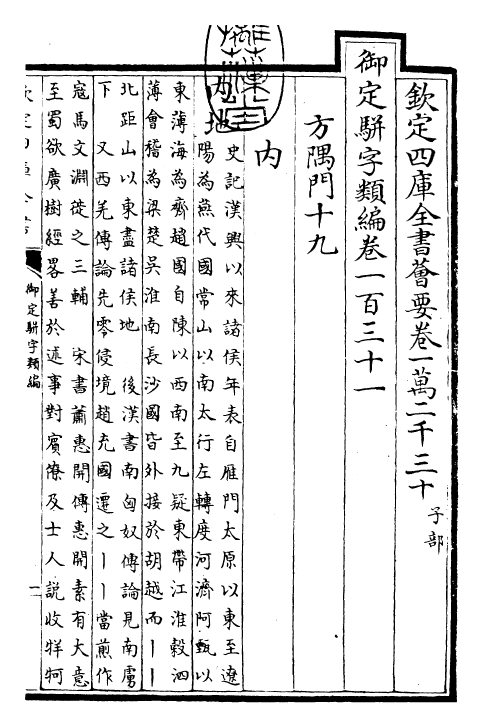 欽定四庫全書薈要卷一萬二千三十 子部
御定駢字類編卷一百三十一
方隅門十九
內
內地 史記漢興以來諸侯年表自雁門太原以東至遼
陽為燕代國常山以南太行左轉度河濟阿甄以
東薄海為齊趙國自陳以西南至九疑東帶江淮穀泗
薄會稽為梁楚吳淮南長沙國皆外接於胡越而丨丨
北距山以東盡諸侯地 後漢書南匈奴傳論見南虜
下 又西羌傳論先零侵境趙充國遷之丨丨當煎作
寇馬文淵徙之三輔 宋書蕭惠開傳惠開素有大意
至蜀欲廣樹經畧善於述事對賓僚及士人説收牂牁
欽定四庫全書
御定駢字類編
一